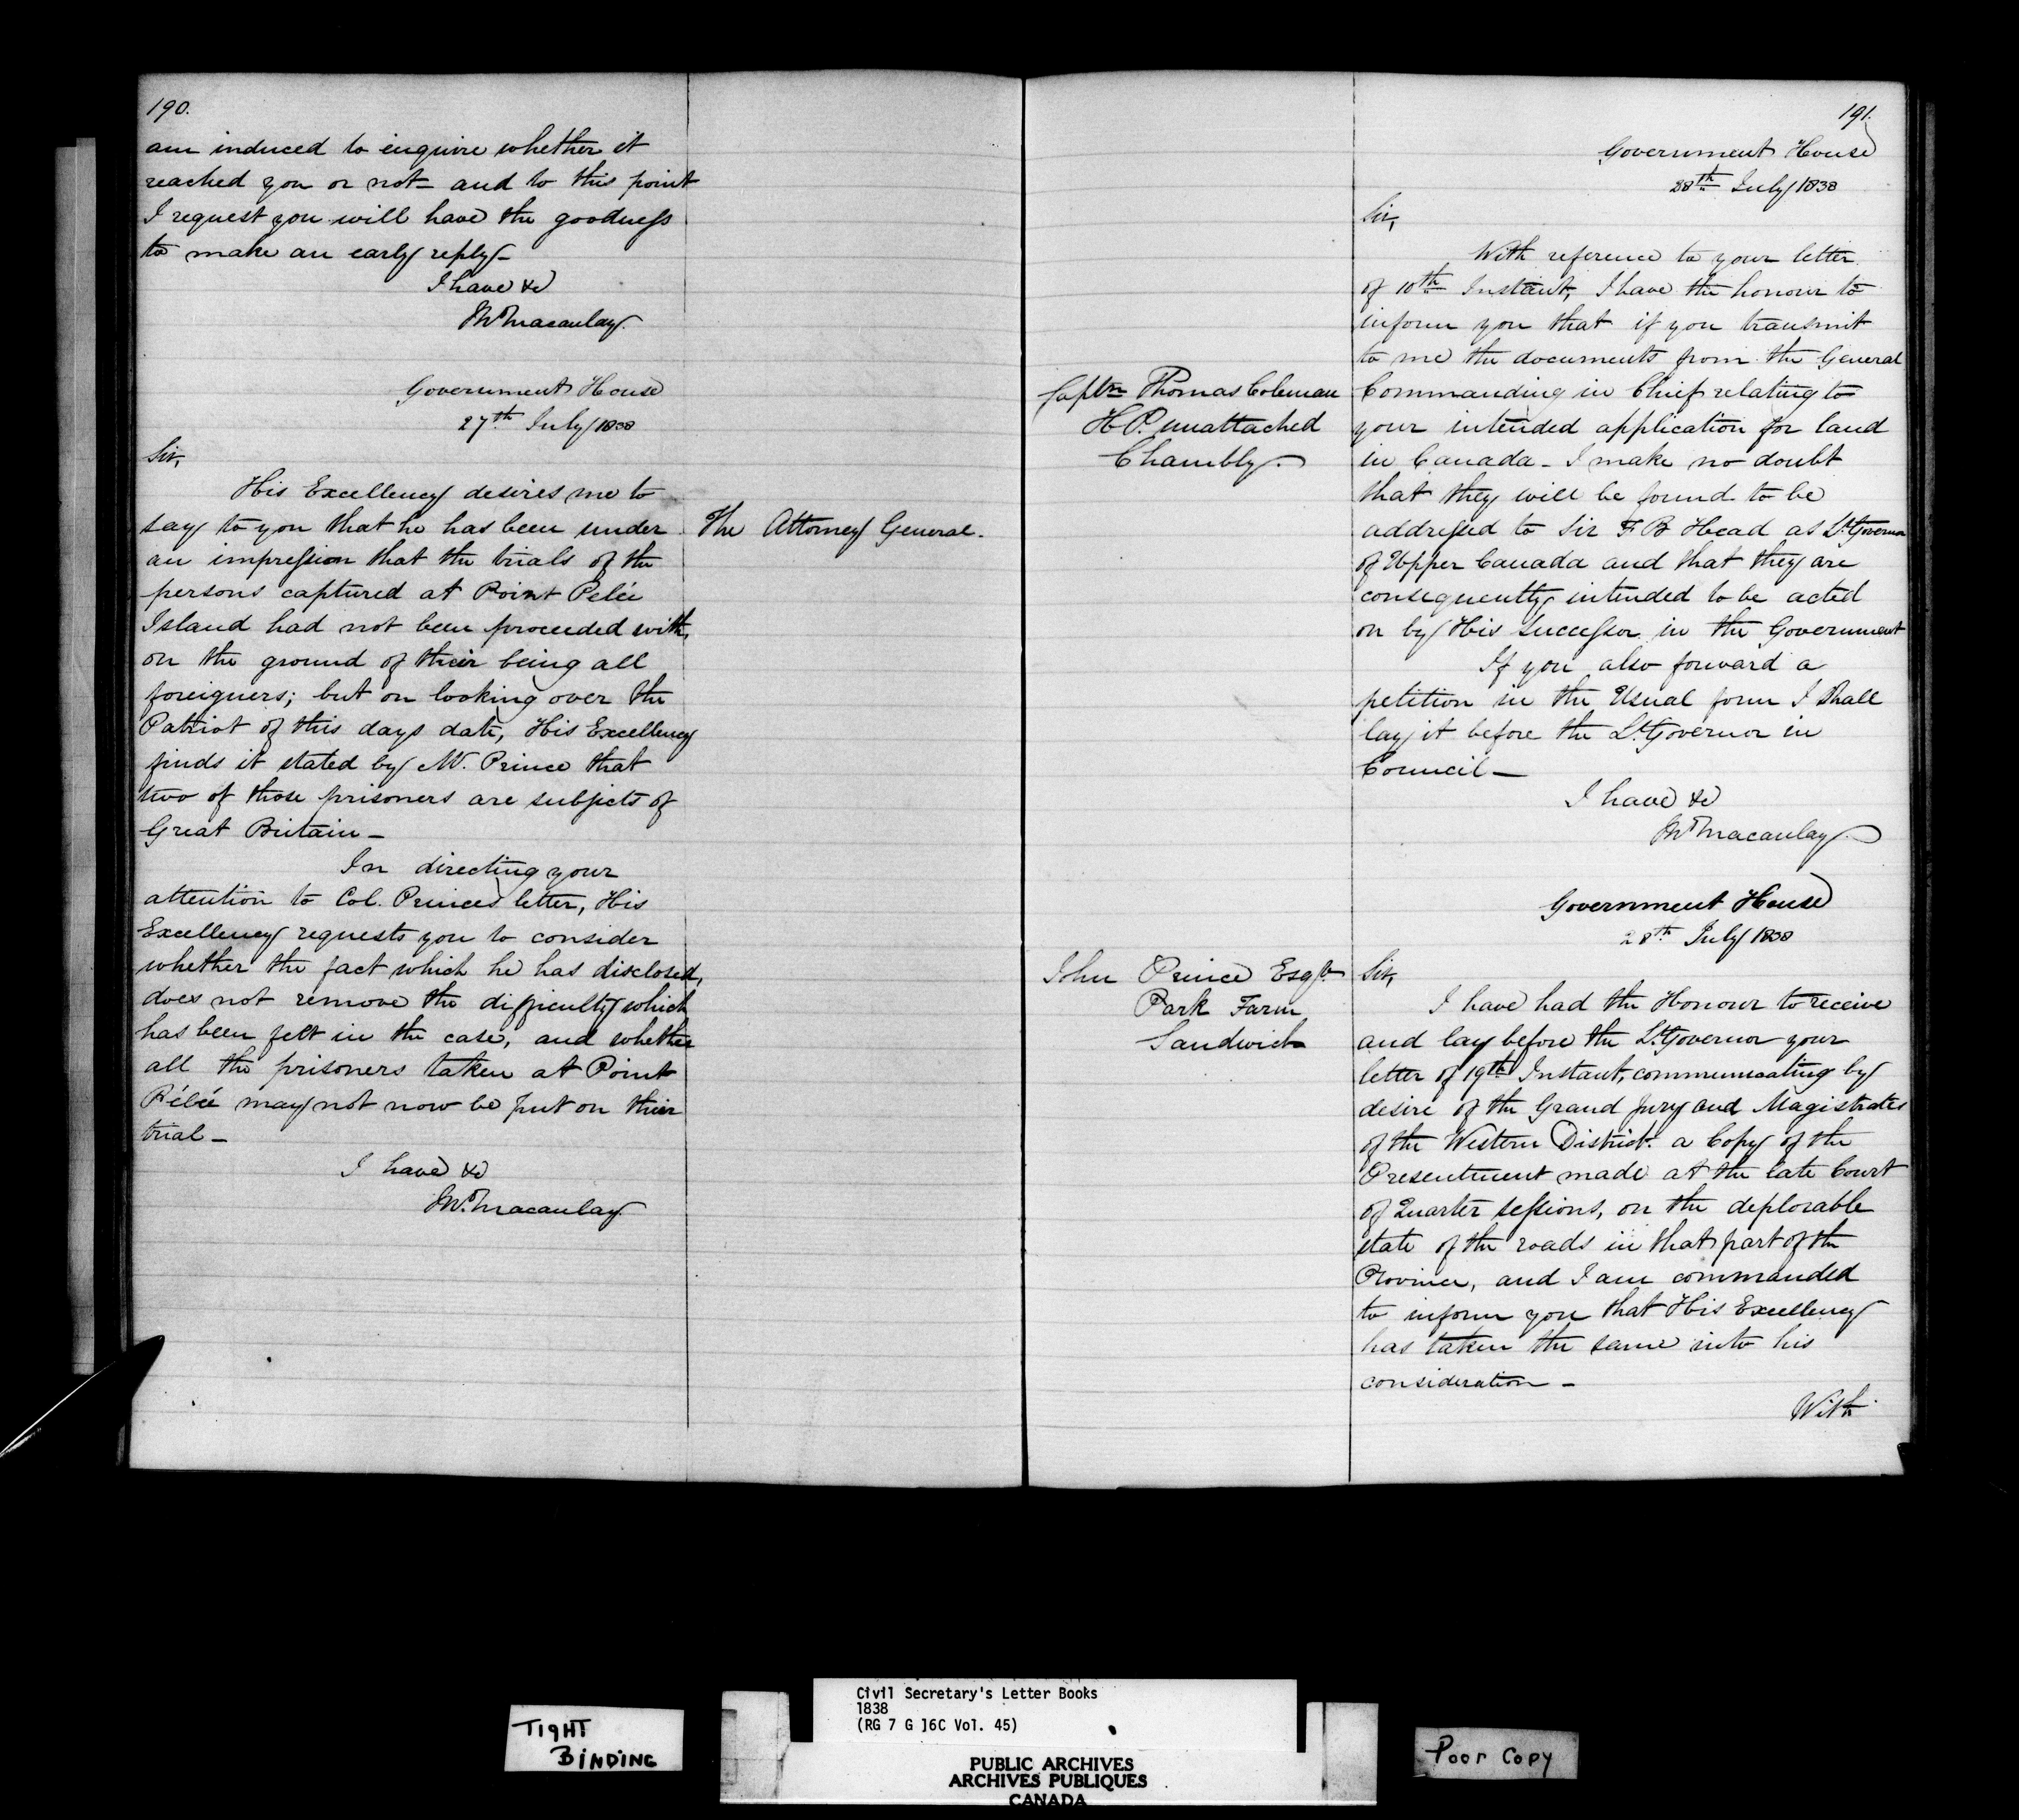 190.
am induced to enquire whether it
reached you or not - and to this point
I request you will have the goodness
to make an early reply -
I have &c
Jn Macaulay.
Government House
27th July 1838
Sir,
His Excellency desires me to
say to you that he has been under
an impression that the trials of the
persons captured at Point Pelée
Island had not been proceeded with,
on the ground of their being all
foreigners; but on looking over the
Patriot of this days date, His Excellency
finds it stated by Mr. Prince that
two of those prisoners are subjects of
Great Britain -
In directing your
attention to Col. Princes letter, His
Excellency requests you to consider
whether the fact which he has disclosed,
does not remove the difficulty which
has been felt in the case, and whether
all the prisoners taken at Point
Pélée may not now be put on their
trial -
I have &c
Jn. Macaulay
The Attorney General.
191.
Government House
28th July 1838
Sir,
With reference to your letter
of 10th Instant, I have the honour to
inform you that if you transmit
to me the documents from the General
Commanding in Chief relating to
your intended application for land
in Canada - I make no doubt
that they will be found to be
addressed to Sir F B Head as Lt. Governor
of Upper Canada and that they are
consequently intended to be acted
on by His Successor in the Government
If you also forward a
petition in the Usual form I shall
lay it before the Lt. Governor in
Council -
I have &c
Jn Macaulay
Captn Thomas Coleman
H P. unattached
Chambly.
Government House
28th July 1838
John Prince Esqr.
Park Farm
Sandwich
Sir,
I have had the Honour to receive
and lay before the Lt. Governor your
letter of 19th Instant, communicating by
desire of the Grand Jury and Magistrates
of the Western District a Copy of the
Presentment made at the late Court
of Quarter Sessions, on the deplorable
state of the roads in that part of the
Province, and I am commanded
to inform you that His Excellency
has taken the same into his
consideration -
With
TIGHT
BINDING
Civil Secretary's Letter Books
1838
(RG 7 G 16C Vol. 45)
PUBLIC ARCHIVES
ARCHIVES PUBLIQUES
CANADA
Poor Copy